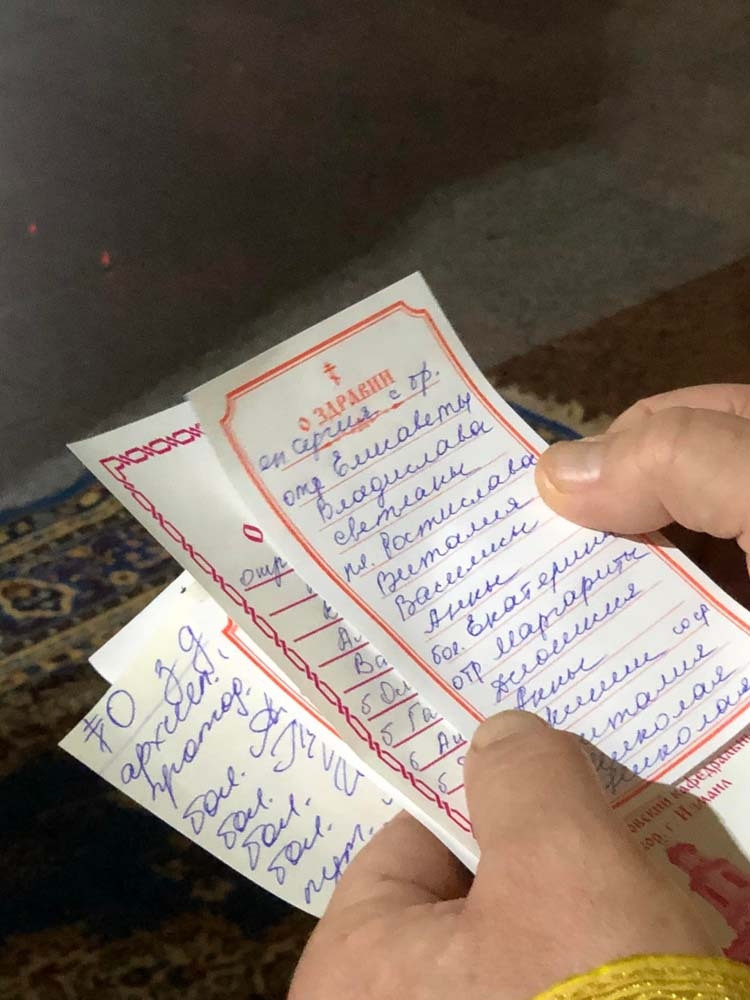 О ЗДРАВИИ
еп Сергия с бр.
отр Елисаветы
Владислава
Светланы
пл. Ростислава
Виталия
Василисы
Анны
бол. Екатерины
отр Маргариты
Дионисия
Анны
соф
италия
Николая
Николая
О
отр
Ал
Ва
б Ол
б Га
б Ал
б
О зд
архиеп.
протод.
бол.
бол.
бол.
бол.
овский кафедральный
ор, г Измаил